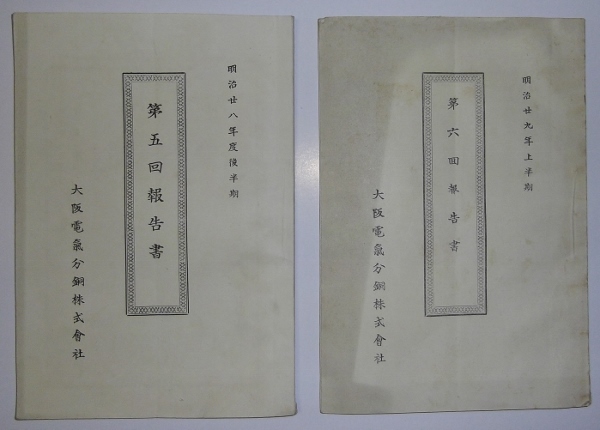 明治廿八年度後半期
第五回報告書
大阪電氣分銅株式會社
明治廿九年上半期
第六回報告書
大阪電氣分銅株式會社